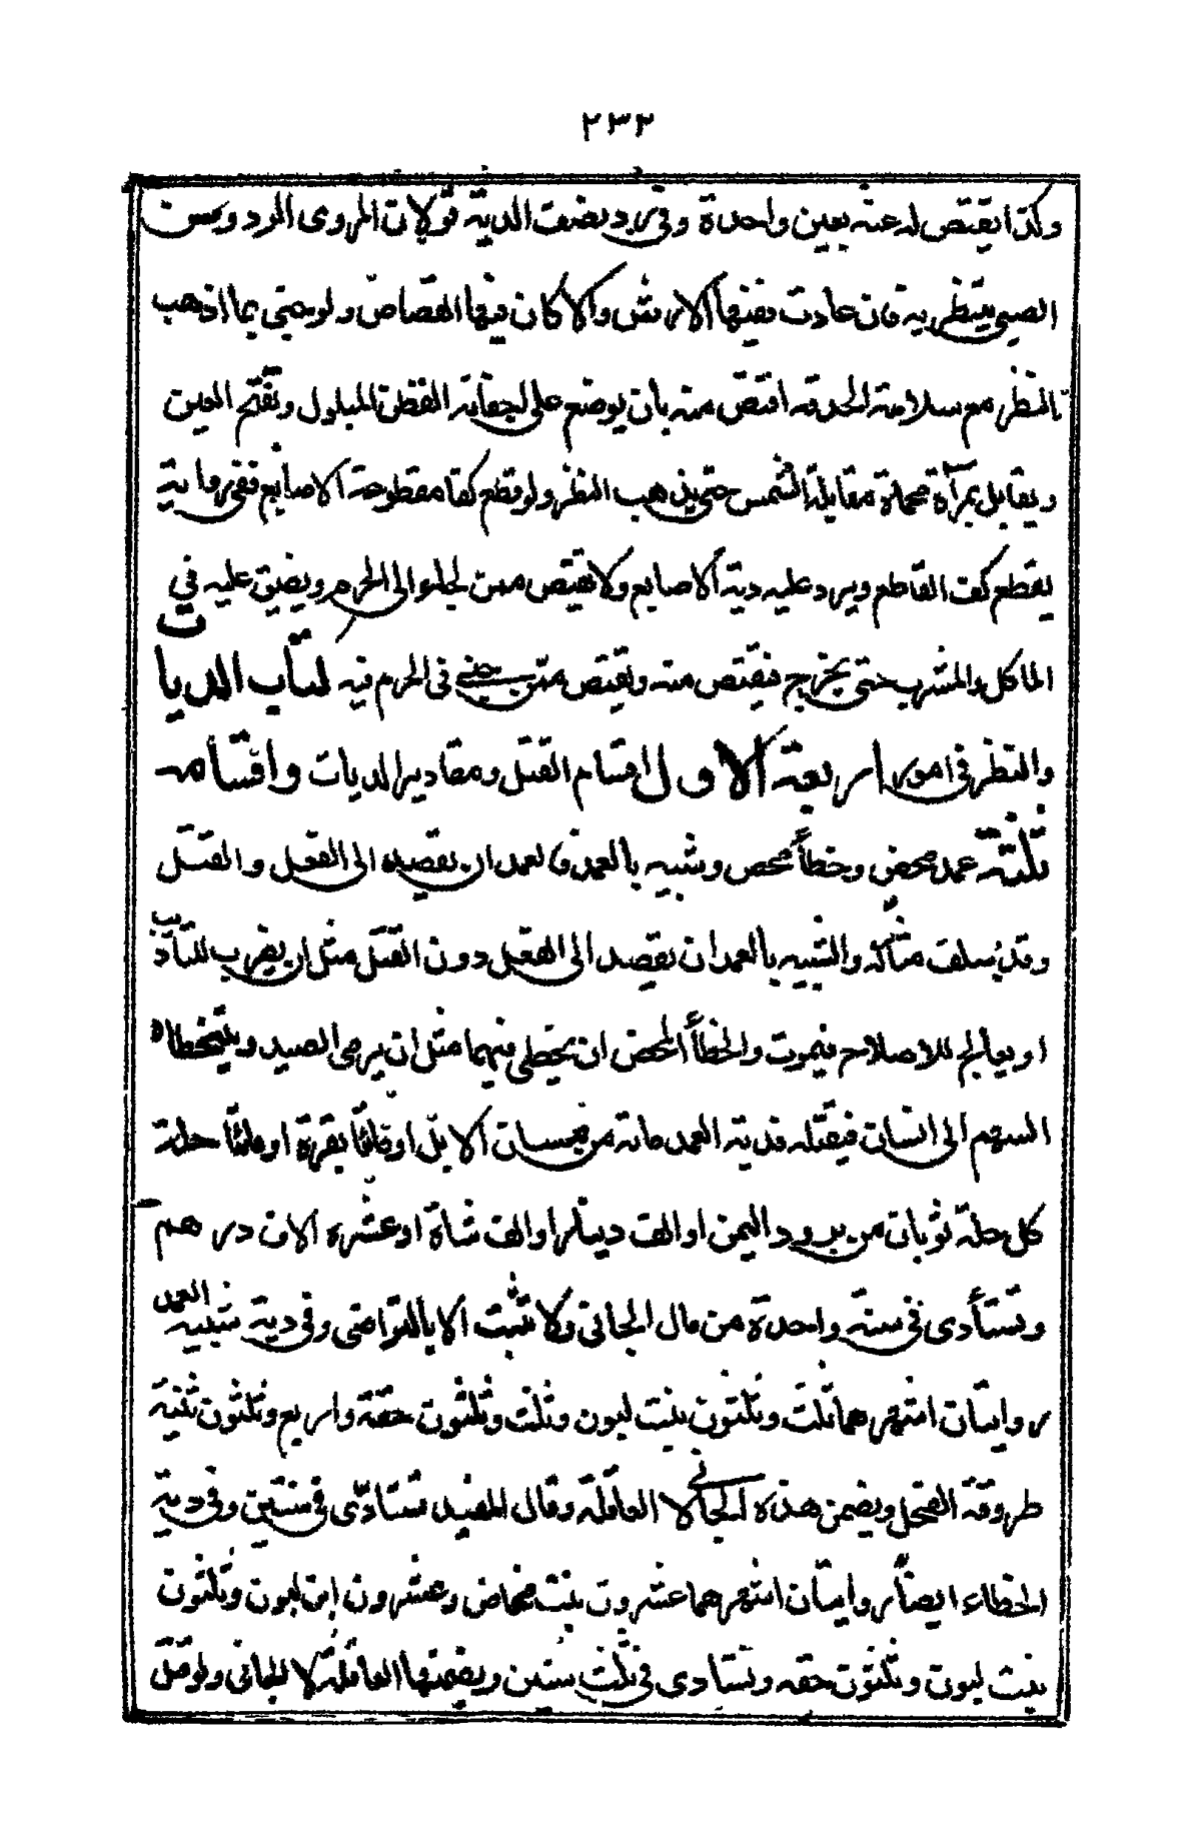 ٢٣٢
وكذا يقتص له عنه بعين واحدة وفى رد نصف الدية قولان المروى الرد وسن
الصبى ينتظر به فان عادت ففيها الارش والا كان فيها القصاص ولو جنى بما اذهب
النظر مع سلامة الحدقة اقتص منه بان يوضع على اجفانه القطن المبلول وتفتح العين
ويقابل بمرآة محماة مقابلة الشمس حتى يذهب النظر ولو قطع كفا مقطوعة الاصابع ففى رواية
يقطع كف القاطع ويرد عليه دية الاصابع ولا يقتص ممن لجاء الى الحرم ويضيق عليه فى
الماكل والمشرب حتى يخرج فيقتص منه ويقتص ممن جنى فى الحرم فيه كتاب الديات
والنظر فى امور اربعة الاول اقسام القتل ومقادير الديات واقسامه
ثلثة عمد محض وخطأ محض وشبيه بالعمد فالعمد ان يقصد الى الفعل والقتل
وقد سلف مثاله والشبيه بالعمد ان يقصد الى الفعل دون القتل مثل ان يضرب للتاديب
او يعالج للاصلاح فيموت والخطأ المحض ان يخطى فيهما مثل ان يرمى الصيد ويتخطاه
السهم الى انسان فيقتله فدية العمد مائة من مسان الابل او مائتا بقرة او مائتا حلة
كل حلة ثوبان من برود اليمن او الف دينار او الف شاة او عشرة الاف درهم
وتستأدى فى سنة واحدة من مال الجانى ولا تثبت الا بالتراضى وفى دية شبيه العمد
روايتان اشهرهما ثلث وثلثون بنت لبون وثلث وثلثون حقة واربع وثلثون ثنية
طروقة الفحل ويضمن هذه الجانى لا العاقلة وقال المفيد تستادى فى سنتين وفى دية
الخطاء ايضا روايتان اشهرهما عشرون بنت مخاض وعشرون ابن لبون وثلثون
بنت لبون وثلثون حقه وتستادى فى ثلث سنين ويضمنها العاقلة لا الجانى ولو قتل